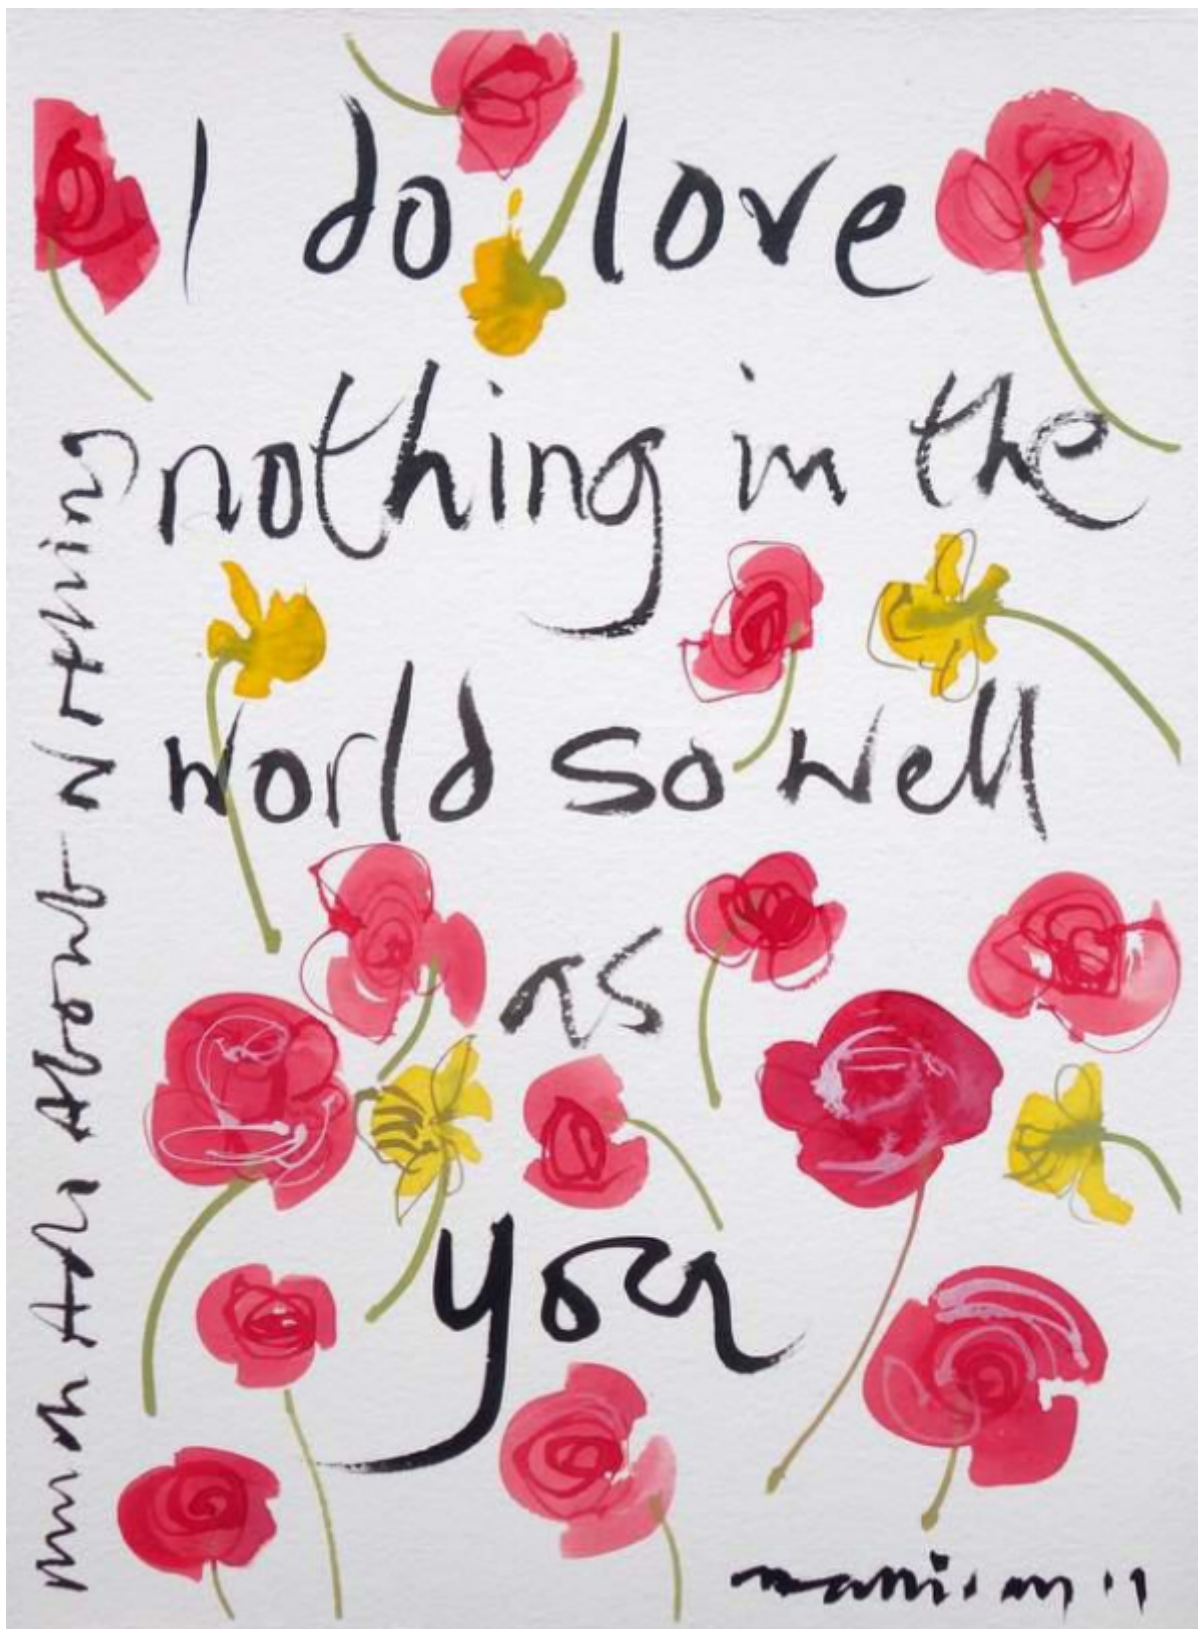 I do love
nothing in the
world so well
as
you
Much Ado About Nothing